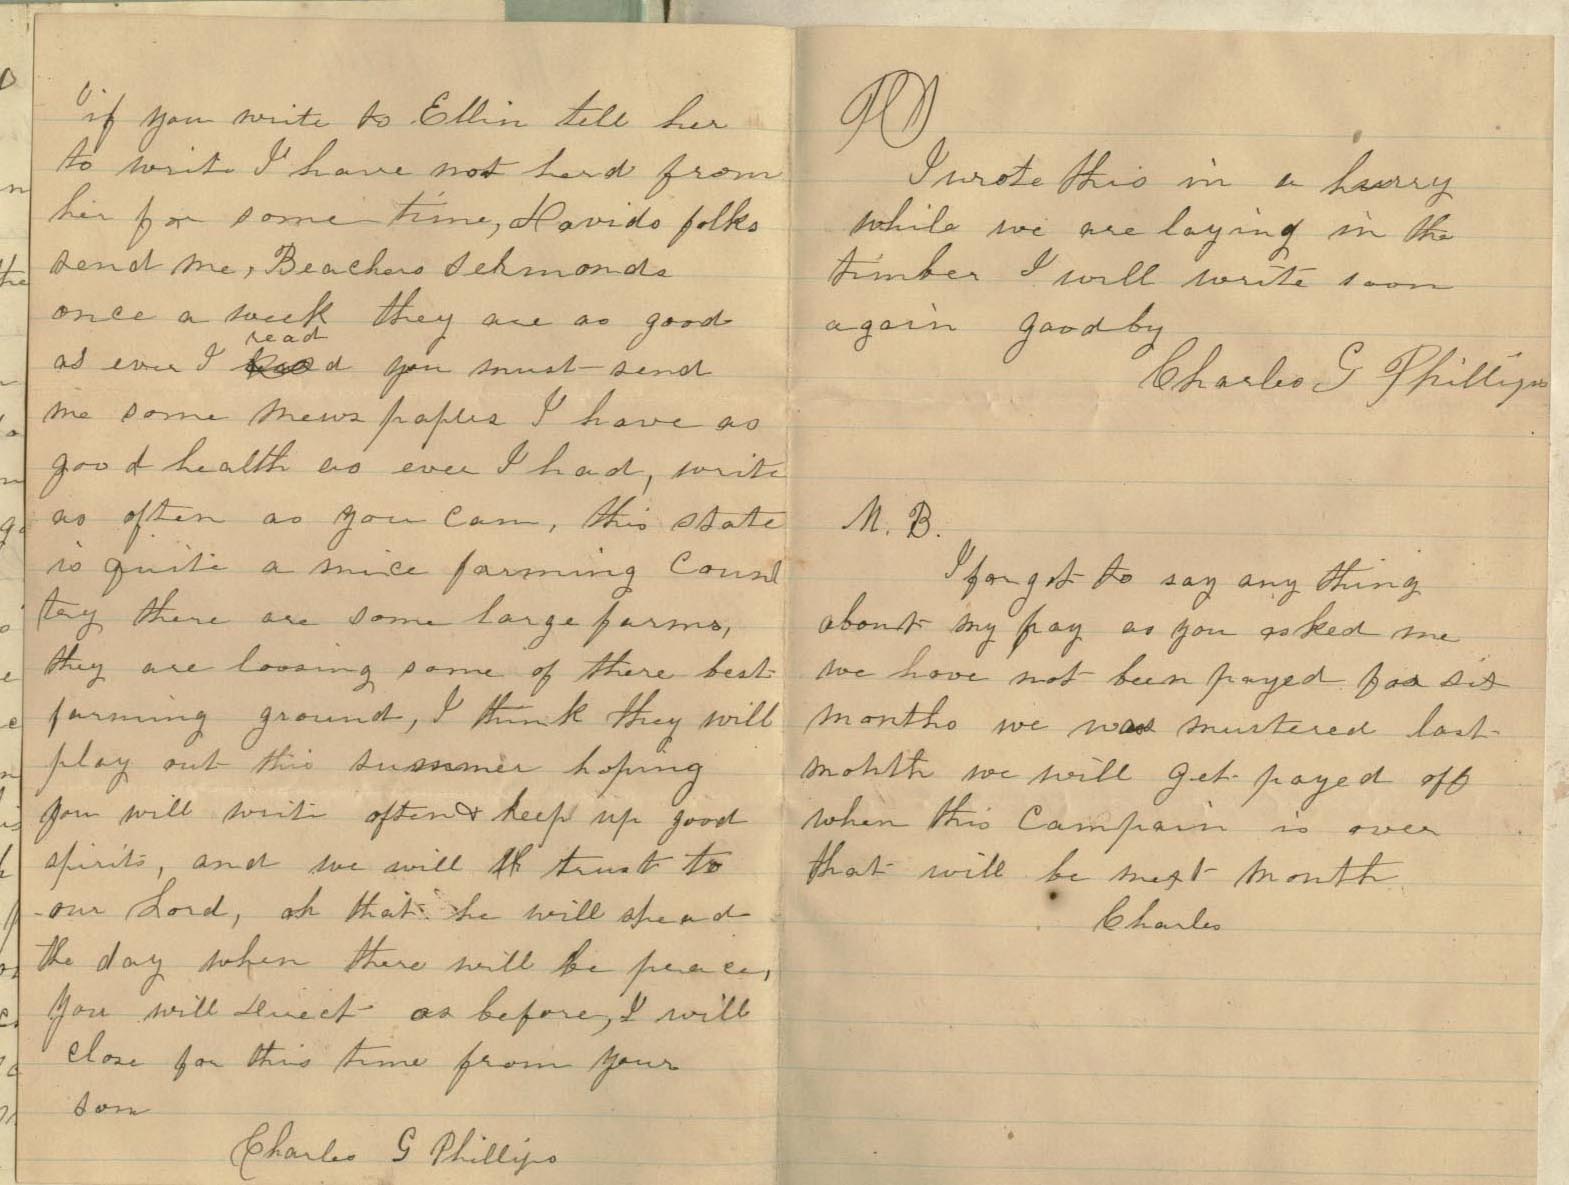 if you write to Ellin tell her
to write I have not herd from
her for some time, Davids folks
send me, Beachers sermonds
once a week they are as good
read
as ever I you must send
me some news papers I have as
good health as ever I had, write
as often as you can, this state
is quite a nice farming coun
try there are some large farms,
they are loosing some of there best
farming ground, I think they will
play out this summer hoping
you will write often & keep up good
spirits, and we will trust to
our Lord, oh that he will spead
the day when there will be peace,
you will direct as before, I will
close for this time from your
son
Charles G Phillips
I wrote this in a hurry
while we are laying in the
timber I will write soon
again goodby
Charles G Phillips
N. B.
I forgot to say any thing
about my pay as you asked me
we have not been payed for six
months we was mustered last
month we will get payed off
when this campain is over
that will be next month
Charles